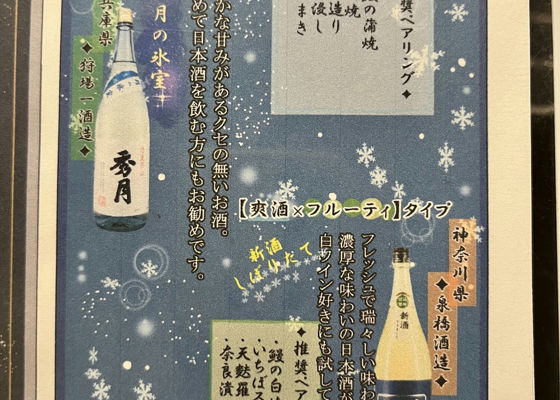 兵庫県
◆狩場一酒造◆
月の氷室
秀月
かな甘みがあるクセの無いお酒。
めて日本酒を飲む方にもお勧めです。
奨ペアリング◆
の蒲焼
焼
造り
浸し
まき
【爽酒×フルーティ】タイプ
新酒
しぼりたて
神奈川県
◆泉橋酒造◆
新酒
フレッシュで瑞々しい味わ
濃厚な味わいの日本酒が
白ワイン好きにも試して
◆推奨ペア
・鰻の白
・いちぼス
・天麩羅
・奈良漬